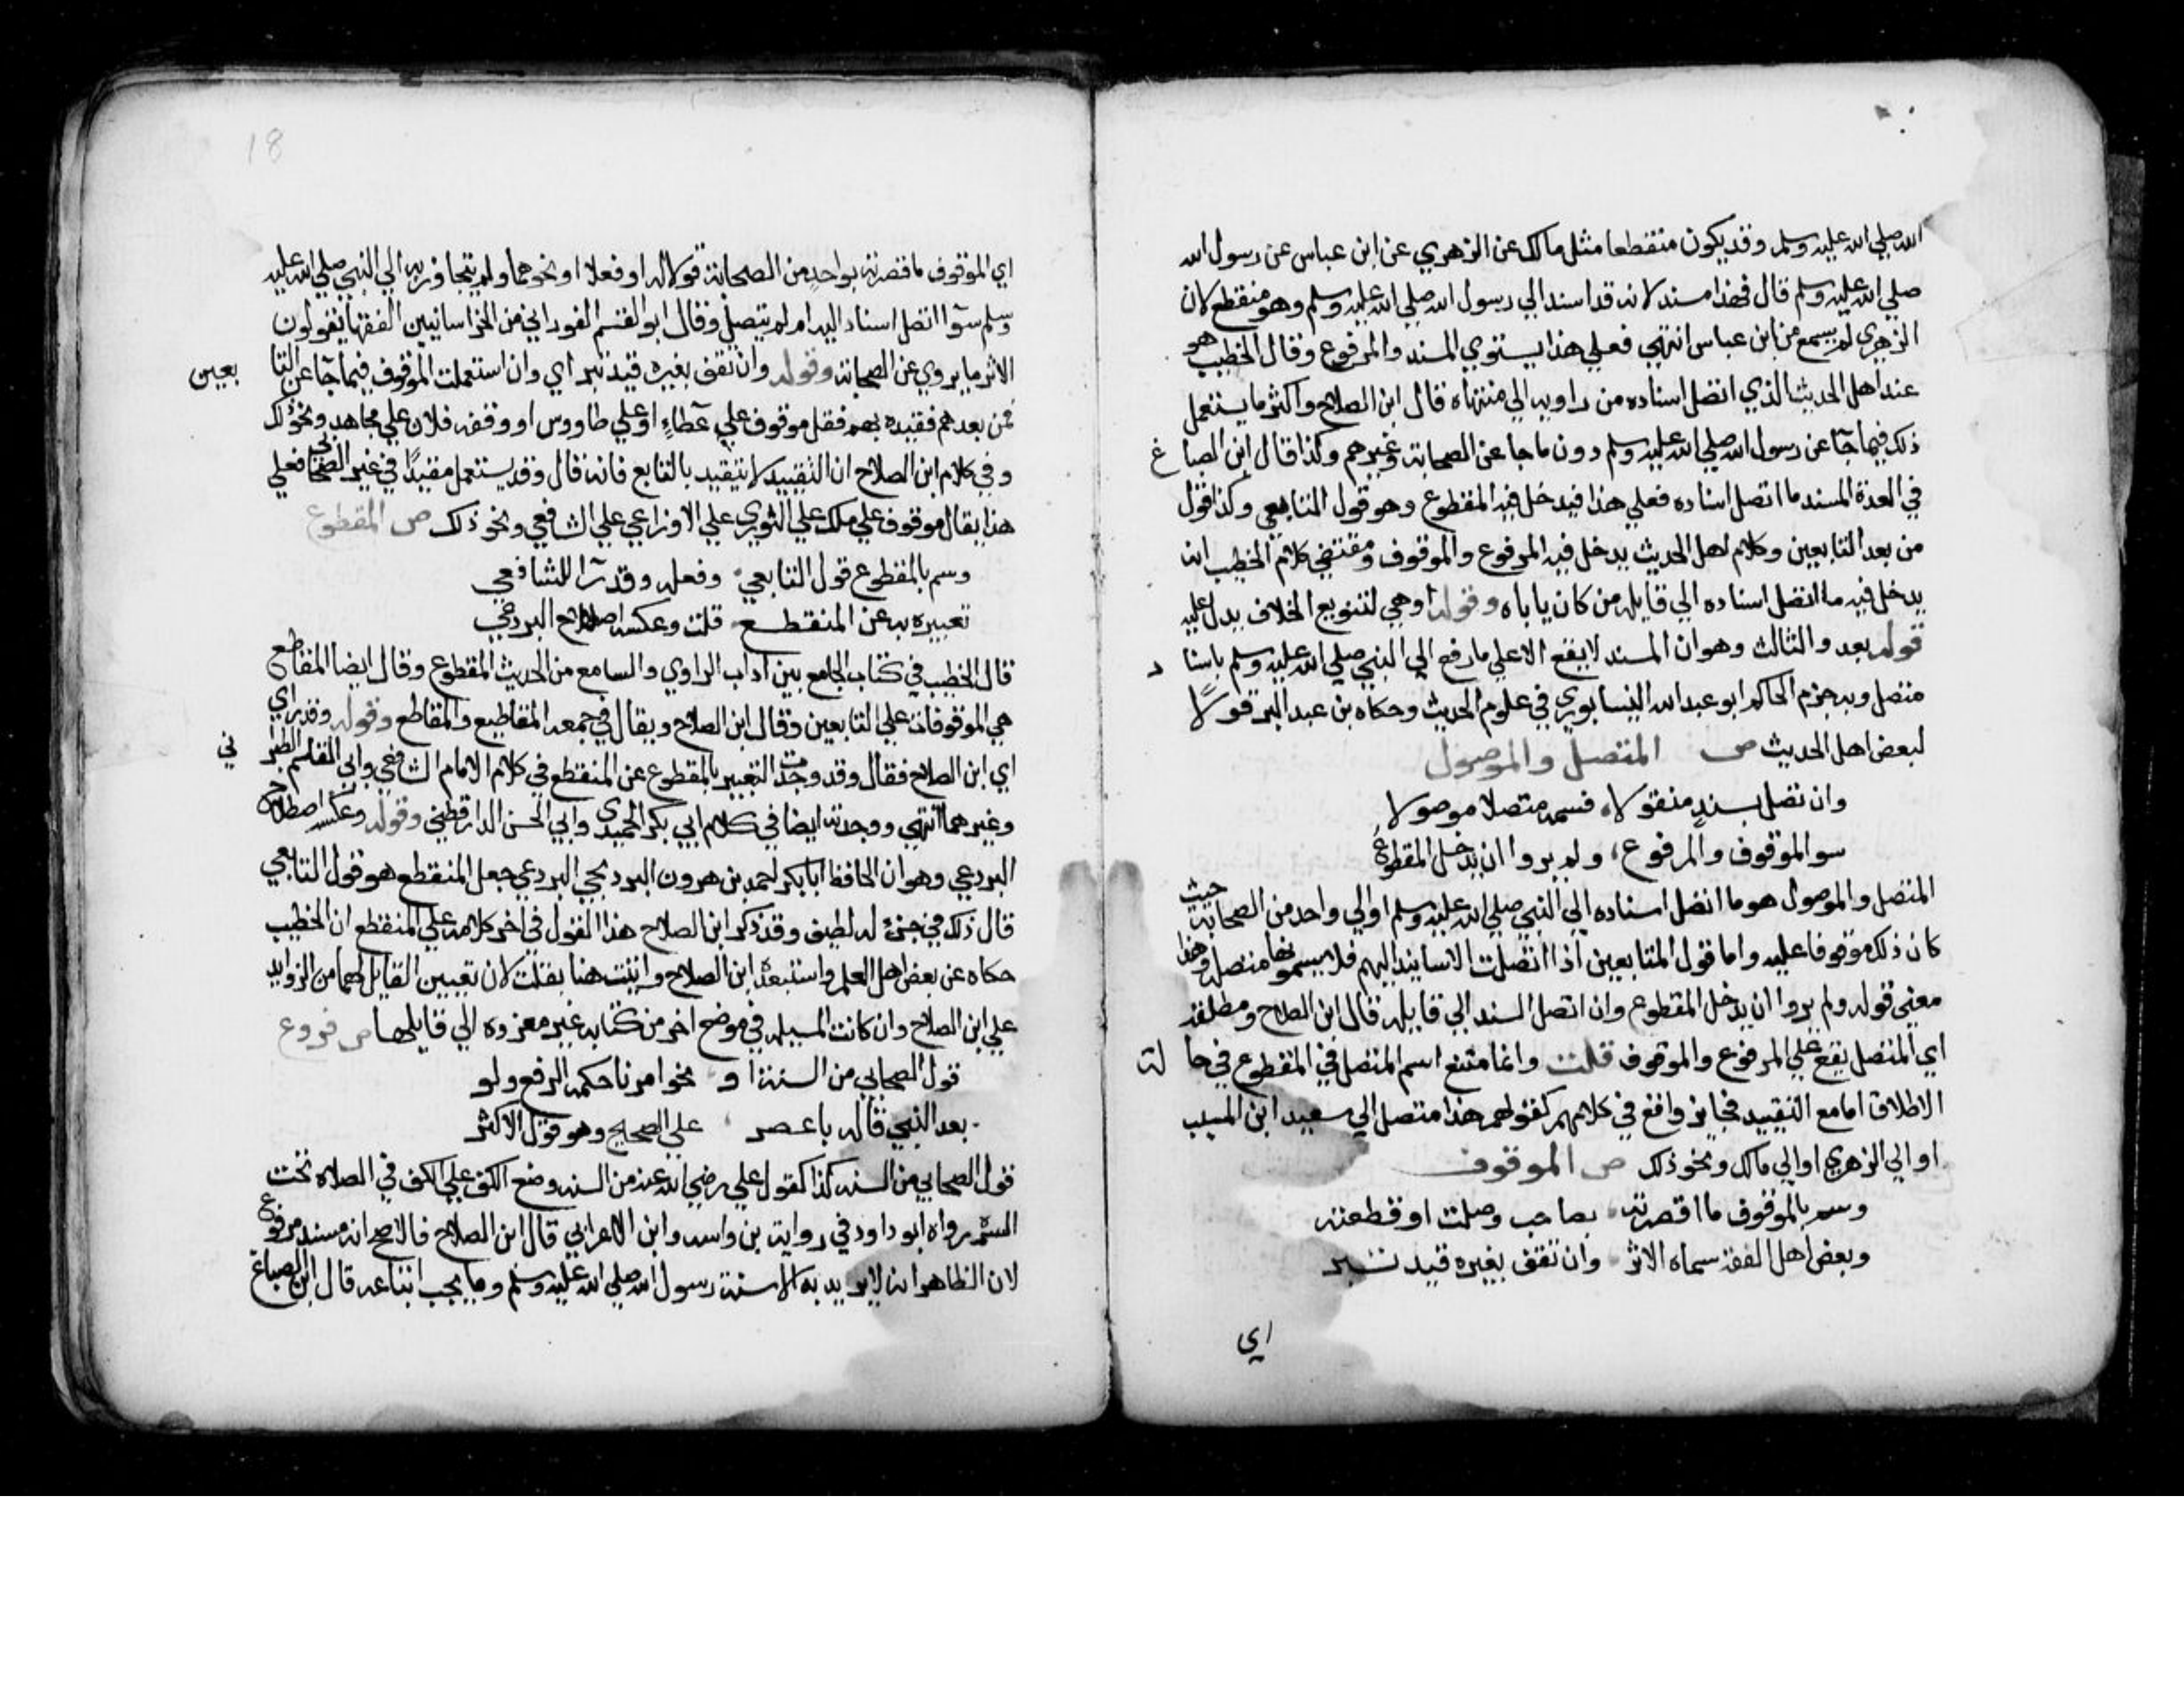 الله صلي الله عليه وسلم وقد يكون منقطعا مثل مالك عن الزهري عن ابن عباس عن رسول الله
صلي الله عليه وسلم قال فهذا مسند لانه قد اسند الي رسول الله صلي الله عليه وسلم وهو منقطع لان
الزهري لم يسمع من ابن عباس انتهي فعلي هذا يستوي المسند والمرفوع وقال الخطيب هو
عند اهل الحديث الذي اتصل اسناده من راويه الي منتهاه قال ابن الصلاح واكثر ما يستعمل
ذلك فيما جآ عن رسول الله صلي الله عليه وسلم دون ما جا عن الصحابة وغيرهم وكذا قال ابن الصباغ
في العدة المسند ما اتصل اسناده فعلي هذا فيدخل فيه المقطوع وهو قول التابعي وكذا قول
من بعد التابعين وكلام اهل الحديث يدخل فيه المرفوع والموقوف ومقتضي كلام الخطيب انه
يدخل فيه ما اتصل اسناده الي قايله من كان ياباه وقوله او هي لتنويع الخلاف يدل عليه
قوله بعد والثالث وهو ان المسند لا يقع الا علي ما رفع الي النبي صلي الله عليه وسلم باسناد
متصل وبه جزم الحاكم ابو عبد الله النيسابوري في علوم الحديث وحكاه بن عبد البر قولًا
لبعض اهل الحديث ص المتصل والموصول
وان تصل بسند منقولا، فسمه متصلا موصولا
سوا الموقوف والمرفوع، ولم يروا ان يدخل المقطوع
المتصل والموصول هو ما اتصل اسناده الي النبي صلي الله عليه وسلم او الي واحد من الصحابة حيث
كان ذلك موقوفا عليه واما قول التابعين اذا اتصلت الاسانيد اليهم فلا يسمونها متصلة وهذا
معني قوله ولم يروا ان يدخل المقطوع وان اتصل السند الي قايله قال ابن الصلاح ومطلقه
اي المتصل يقع علي المرفوع والموقوف قلت وانما متنع اسم المتصل في المقطوع في حالة
الاطلاق اما مع التقييد فجايز واقع في كلامهم كقولهم هذا متصل الي سعيد ابن المسيب
او الي الزهري او الي مالك ونحو ذلك ص الموقوف
وسم بالموقوف ما اقصرته بصاحب وصلت او قطعته
وبعض اهل الفقه سماه الاثر وان تقف بغيره قيد تبر
اي
18
اي الموقوف ما قصرته بواحدٍ من الصحابة قولا له او فعلا او نحوهما ولم يتجاوز به الي النبي صلي الله عليه
وسلم سوآ اتصل اسناد اليه ام لم يتصل وقال ابو القسم الفوراني من الخراسانيين الفقها يقولون
الاثر ما يروي عن الصحابة وقوله وان تقف بغيره قيد تبر اي وان استعملت الموقوف فيما جآ عن التابعين
فمن بعدهم فقيده بهم فقل موقوف علي عطاءٍ او علي طاووس او وقفه فلان علي مجاهد ونحو ذلك
وفي كلام ابن الصلاح ان التقييد لا يتقيد بالتابع فانه قال وقد يستعمل مقيدًا في غير الصحابي فعلي
هذا يقال موقوف علي ملك علي الثوري علي الاوزاعي علي الشافعي ونحو ذلك ص المقطوع
وسم بالمقطوع قول التابعي وفعله وقد رآ للشافعي
تعبيره به عن المنقطع قلت وعكسه اصطلاح البردعي
قال الخطيب في كتاب الجامع بين اداب الراوي والسامع من الحديث المقطوع وقال ايضا المقاطع
هي الموقوفات علي التابعين وقال ابن الصلاح ويقال في جمعه المقاطيع والمقاطع وقوله وقد رآي
اي ابن الصلاح فقال وقد وجدت التعبير بالمقطوع عن المنقطع في كلام الامام الشافعي وابي القاسم الطبراني
وغيرهما انتهي ووجدته ايضا في كلام ابي بكر الحميدي وابي الحسن الدارقطني وقوله وعكسه اصطلاح
البردعي وهو ان الحافظ ابا بكر احمد بن هرون البرديجي البردعي جعل المنقطع هو قول التابعي
قال ذلك في جزء له لطيف وقد ذكر ابن الصلاح هذا القول في اخر كلامه علي المنقطع ان الخطيب
حكاه عن بعض اهل العلم واستبعده ابن الصلاح واتيت هنا بقلت لان تعيين القايل لهما من الزوايد
علي ابن الصلاح وان كانت المسيله في موضع اخر من كتابه غير معزوه الي قايلها ص فروع
قول الصحابي من السنة او نحو امرنا حكمه الرفع ولو
بعد النبي قاله باعصر علي الصحيح وهو قول الاكثر
قول الصحابي من السنه كذا كقول علي رضي الله عنه من السنه وضع الكف علي الكف في الصلاه تحت
السره رواه ابو داود في رواية بن واسه وابن الاعرابي قال ابن الصلاح فالاصح انه مسند مرفوع
لان الظاهر انه لا يريد به الا سنة رسول الله صلي الله عليه وسلم وما يجب اتباعه قال ابن الصباغ